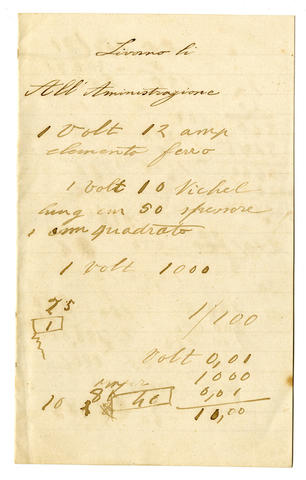 Livorno li
All'Aministrazione
1 Volt 12 amp
elemento ferro
1 volt 10 Nichel
lung cm 50 spessore
1 cm quadrato
1 Volt 1000
75
1/100
1
Volt 0,01
amper 1000
10 8 40 0,01
10,00